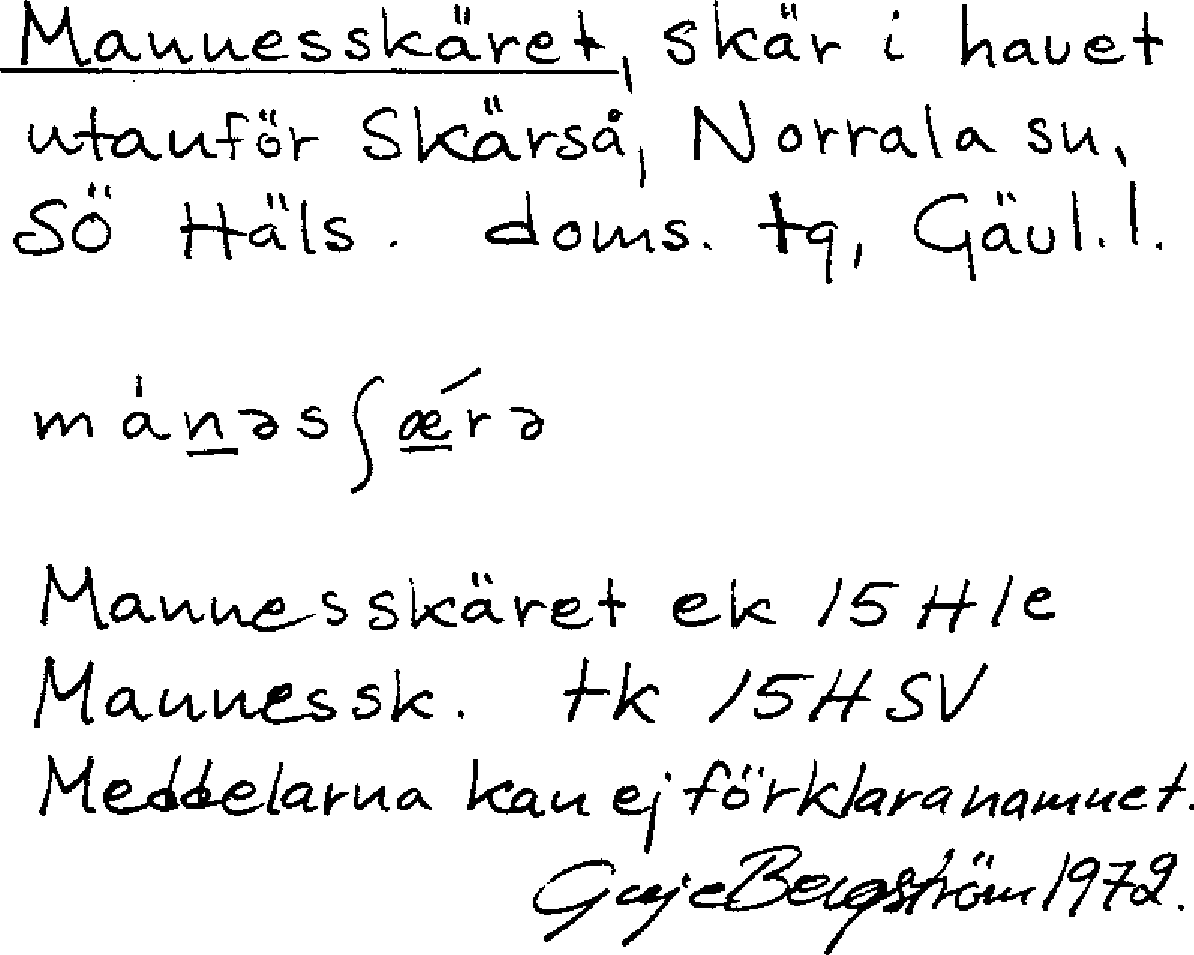 Mannesskäret, skär i havet
utanför Skärså, Norrala sn,
SÖ Häls. doms. tg, Gävl. l.
mánəsʃǽrə
Mannesskäret ek 15 H 1e
Mannessk. tk 15 H SV
Meddelarna kan ej förklara namnet.
Bergström 1972.